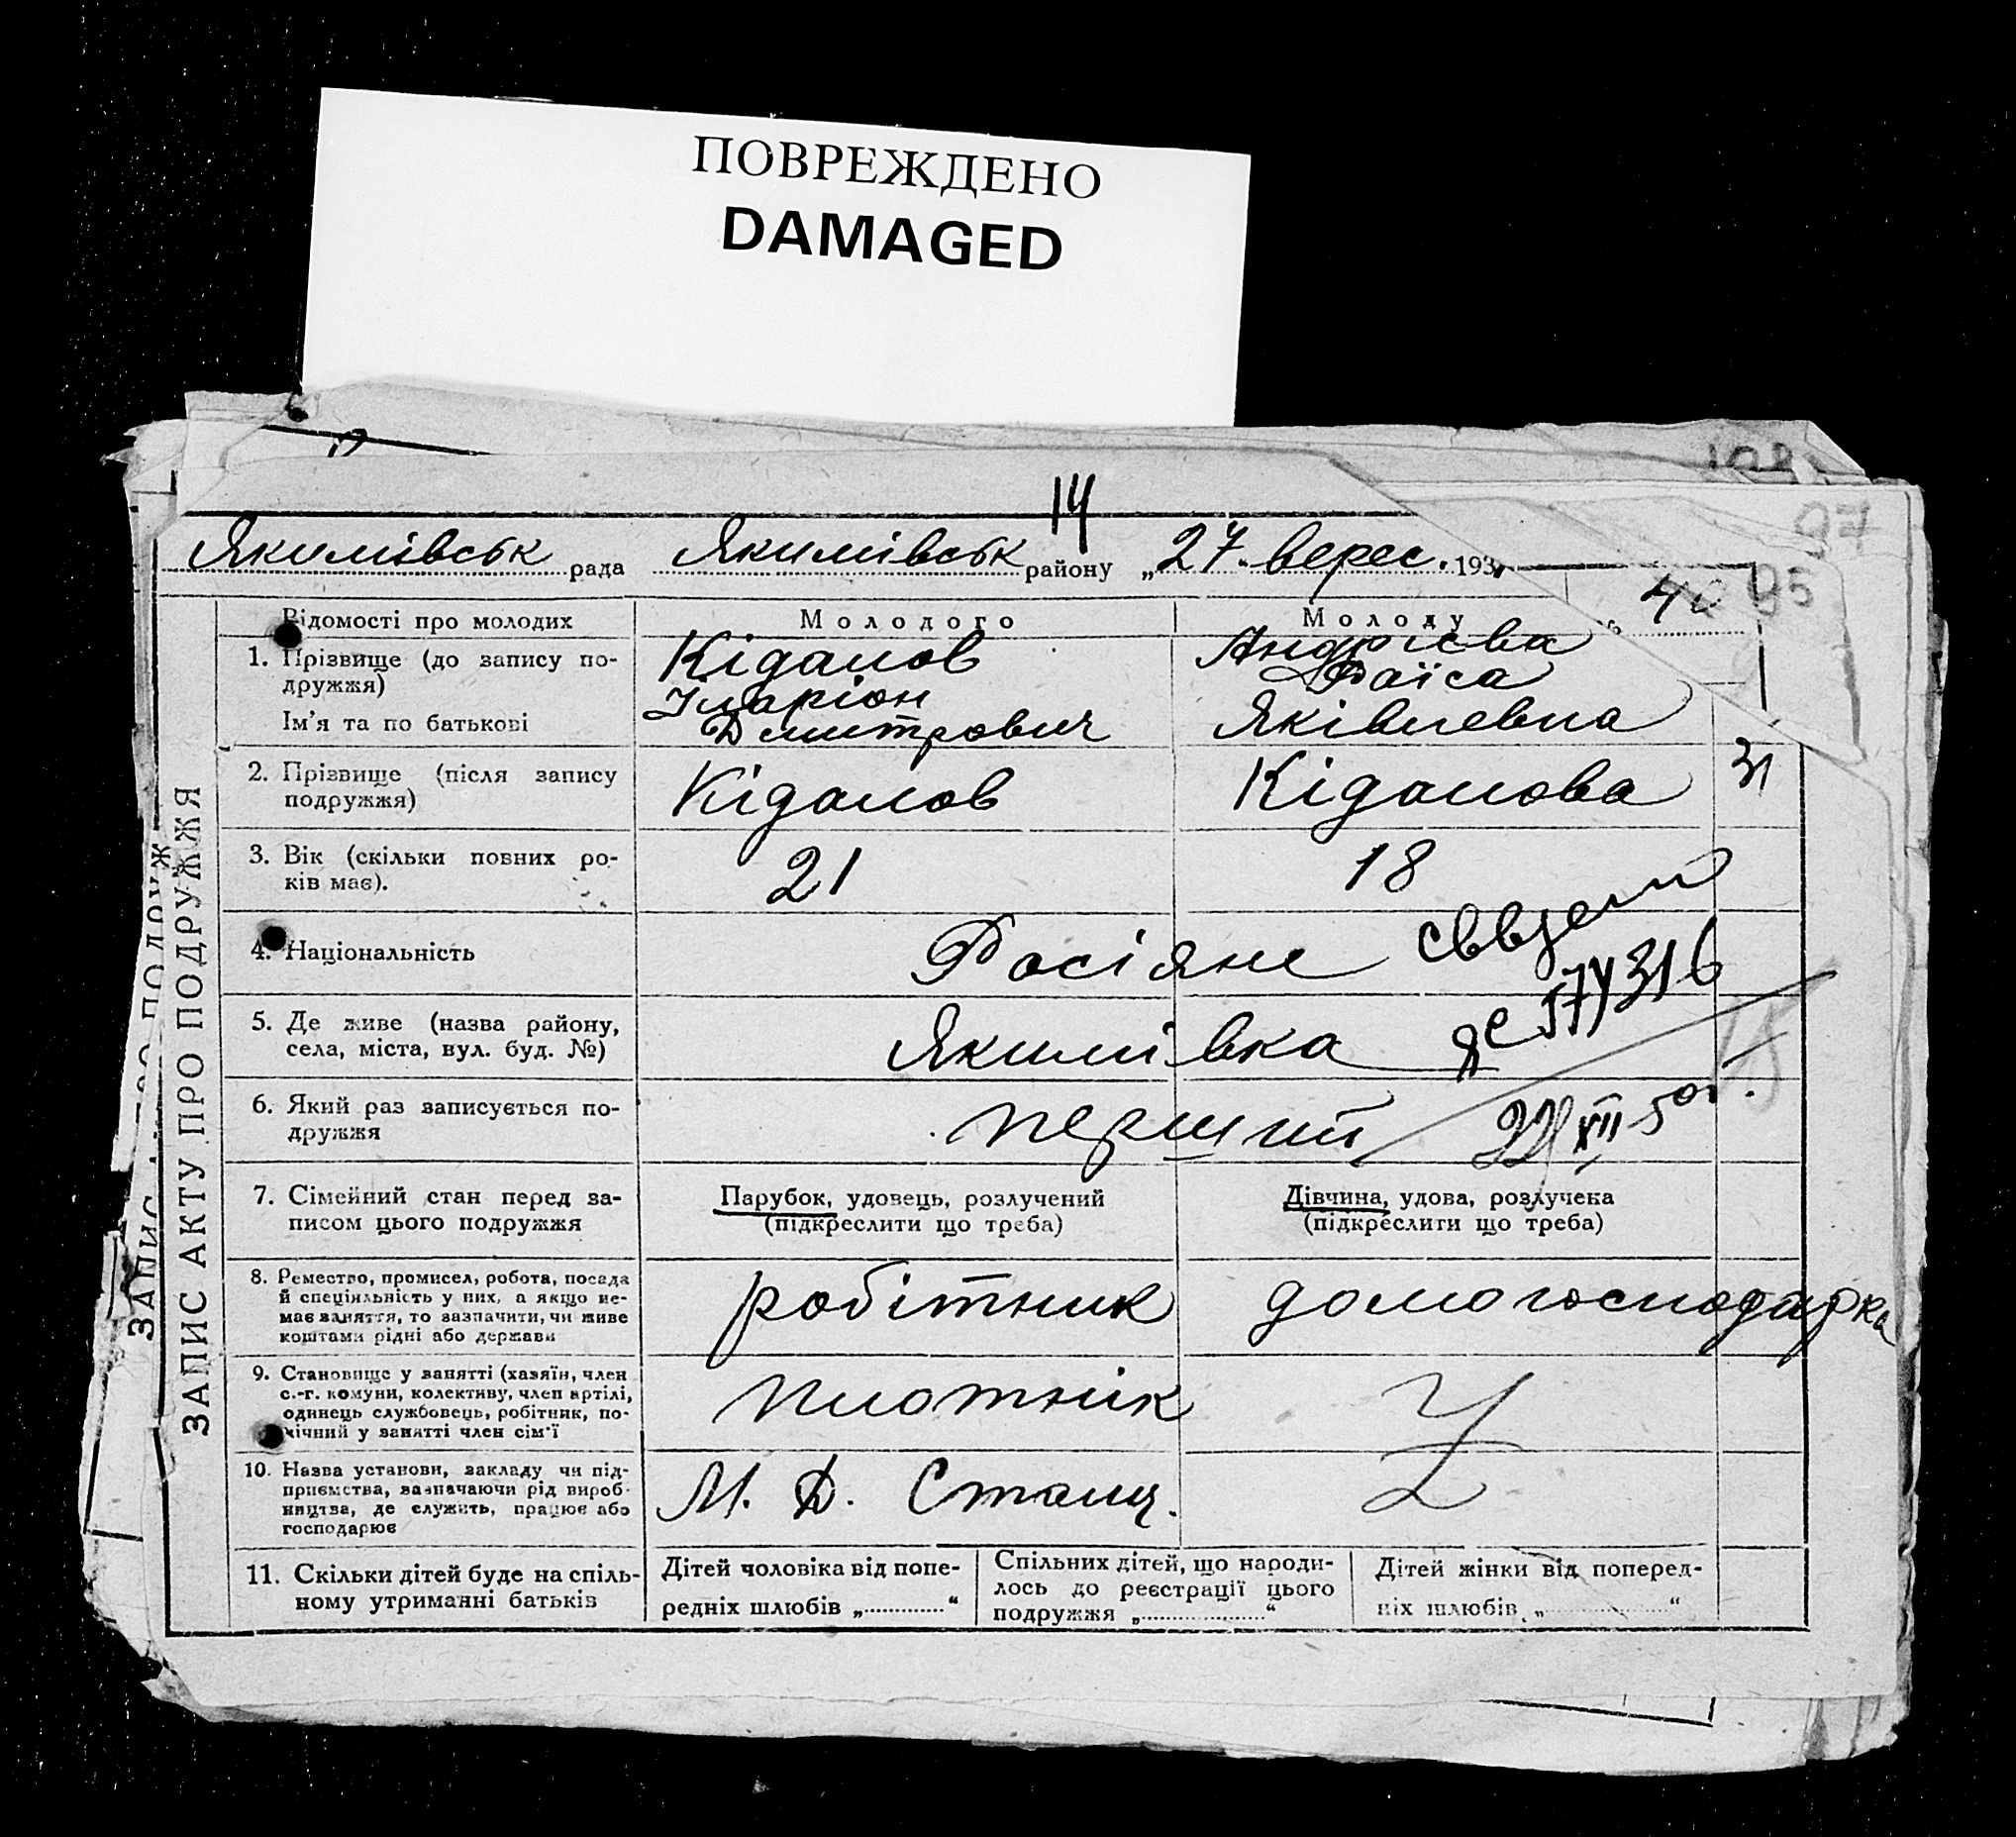 ПОВРЕЖДЕНО
DAMAGED
14
Якимівськ рада Якимівськ району „27. верес. 193
40
97
95
ЗАПИС АКТУ ПРО ПОДРУЖЖЯ
Відомості про молодих
Молодого
Молоду
1. Прізвище (до запису по-
дружжя)
Ім'я та по батькові
Кідалов
Іларіон
Дмитрович
Андрієва
Раїса
Яківлевна
2. Прізвище (після запису
подружжя)
Кідалов
Кідалова
31
3. Вік (скільки повних ро-
ків має).
21
18
4. Національність
Росіяне
5. Де живе (назва району,
села, міста, вул. буд. №)
Якимівка
6. Який раз записується по-
дружжя
перший
7. Сімейний стан перед за-
писом цього подружжя
Парубок, удовець, розлучений
(підкреслити що треба)
Дівчина, удова, розлучена
(підкреслити що треба)
8. Ремество, промисел, робота, посада
й спеціяльність у них, а якщо не-
має заняття, то зазначити, чи живе
коштами рідні або держави
робітник
домогосподарка
9. Становище у занятті (хазяїн, член
с.-г. комуни, колективу, член артілі,
одинець службовець, робітник, по-
мічний у занятті член сім'ї
плотнік
10. Назва установи, закладу чи під-
приємства, зазначаючи рід вироб-
ництва, де служить, працює або
господарює
М. Д. Станц.
11. Скільки дітей буде на спіль-
ному утриманні батьків
Дітей чоловіка від попе-
редніх шлюбів „ “
Спільних дітей, що народи-
лось до реєстрації цього
подружжя „ “
Дітей жінки від поперед-
ніх шлюбів „ “